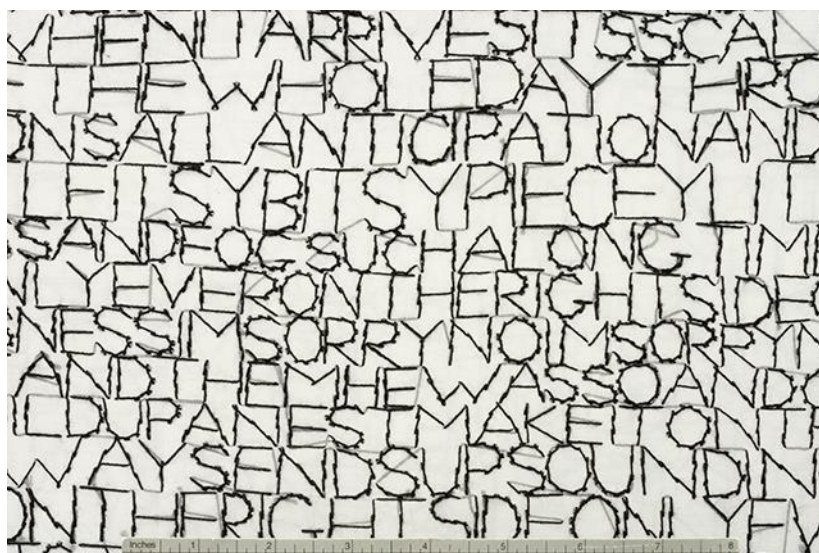 WHENITARRIVESITSSCAL
ETHEWHOLEDAYTHRO
ONSALLANTICIPATIONAND
LEITSYBITSYPIECEYLITT
SANDEOGSSUCHALONGTIM
NLYEVERONTHERIGHTSIDEO
NESSIMSORRYNOIMSORRYN
ANDTHEMHEWASSOANDO
ILDUPANESTIMAKEITONT
WAYSENDSUPSOUNDIN
ONTHERIGHTSIDEONLYEV
Inches 1 2 3 4 5 6 7 8